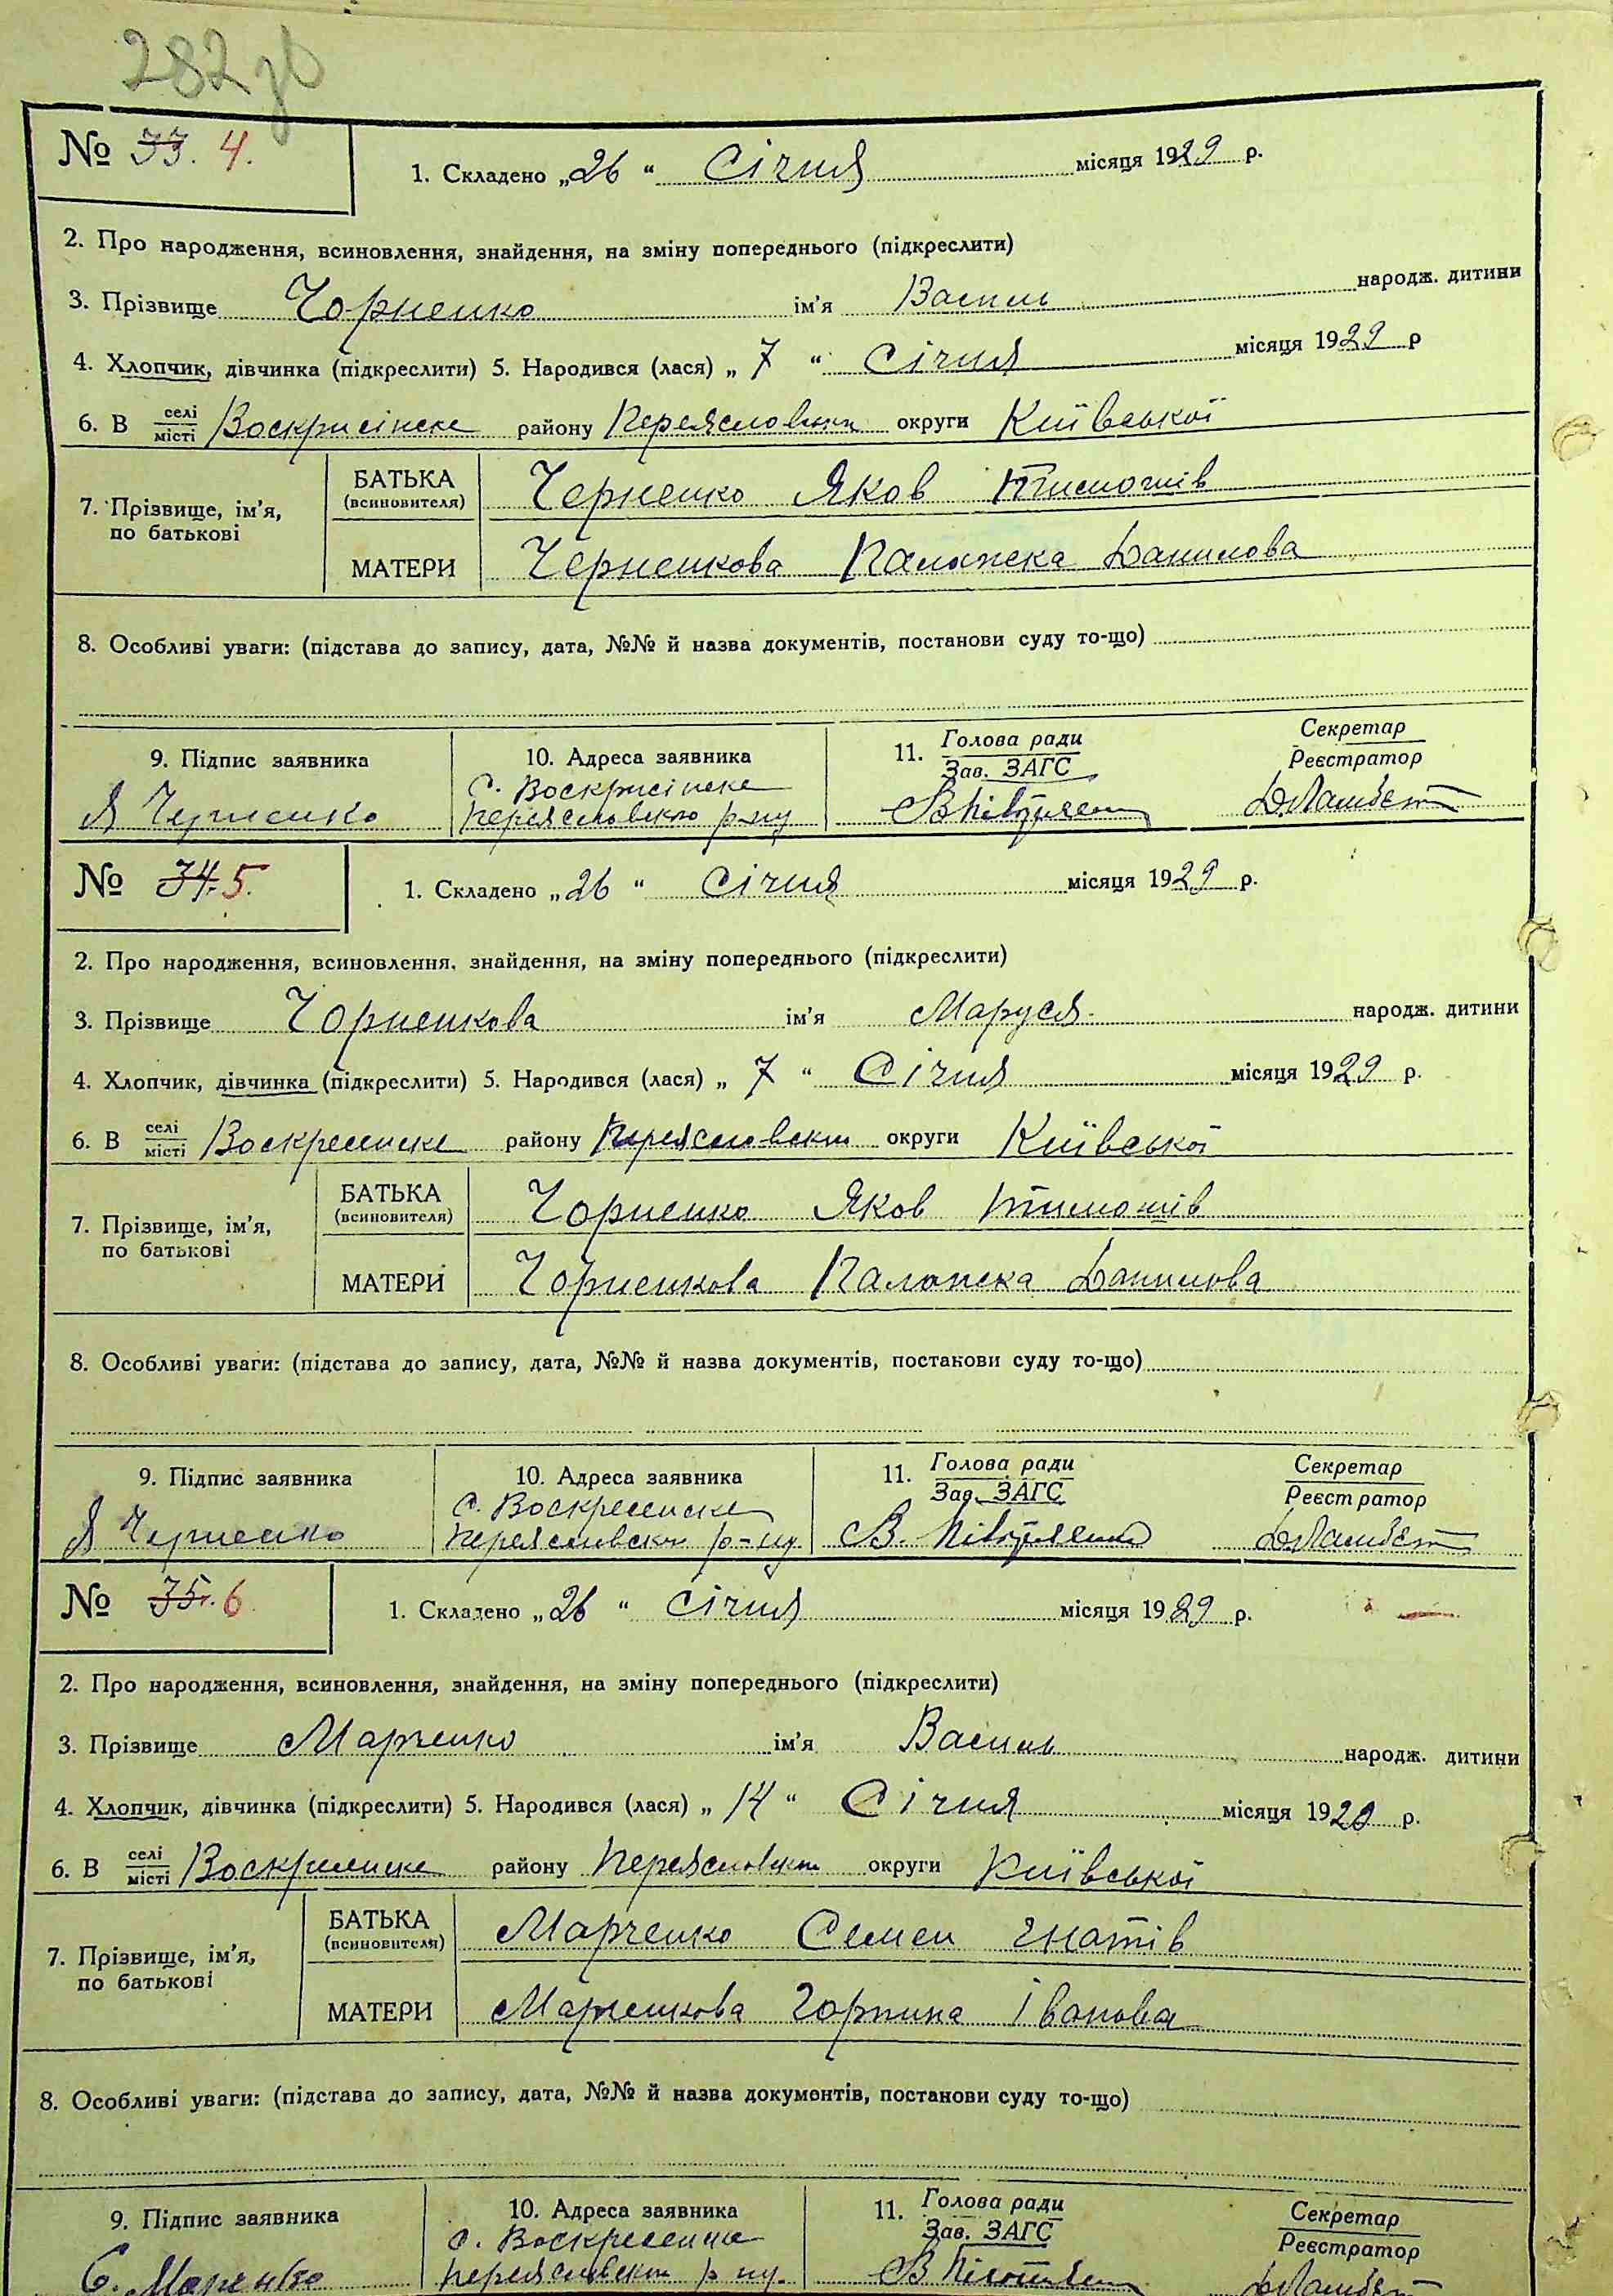 282 зв
№ 33. 4.
1. Складено „26“ Січня місяця 1929 р.
2. Про народження, всиновлення, знайдення, на зміну попереднього (підкреслити)
3. Прізвище Чорненко ім'я Василь народж. дитини
4. Хлопчик, дівчинка (підкреслити) 5. Народився (лася) „7“ Січня місяця 1929 р
6. В селі місті Воскрисінске району Переяславськ округи Київської
7. Прізвище, ім'я, по батькові
БАТЬКА (всиновителя) Черненко Яков Тимошів
МАТЕРИ Черненкова Палажска Данилова
8. Особливі уваги: (підстава до запису, дата, №№ й назва документів, постанови суду то-що)
9. Підпис заявника
Я Черненко
10. Адреса заявника
с. Воскрисінске
Переяславского р-ну
11. Голова ради
Зав. ЗАГС
Секретар
Реєстратор
№ 34. 5.
1. Складено „26“ Січня місяця 1929 р.
2. Про народження, всиновлення, знайдення, на зміну попереднього (підкреслити)
3. Прізвище Чорненкова ім'я Маруся народж. дитини
4. Хлопчик, дівчинка (підкреслити) 5. Народився (лася) „7“ Січня місяця 1929 р.
6. В селі місті Воскресенске району Переясловськ округи Київської
7. Прізвище, ім'я, по батькові
БАТЬКА (всиновителя) Чорненко Яков Тимошів
МАТЕРИ Чорненкова Палажска Данилова
8. Особливі уваги: (підстава до запису, дата, №№ й назва документів, постанови суду то-що)
9. Підпис заявника
Я Черненко
10. Адреса заявника
с. Воскресенске
Переясловськ р-ну
11. Голова ради
Зав. ЗАГС
Секретар
Реєстратор
№ 35. 6
1. Складено „26“ Січня місяця 1929 р.
2. Про народження, всиновлення, знайдення, на зміну попереднього (підкреслити)
3. Прізвище Марченко ім'я Василь народж. дитини
4. Хлопчик, дівчинка (підкреслити) 5. Народився (лася) „14“ Січня місяця 1929 р.
6. В селі місті Воскресенске району Переясловськ округи Київської
7. Прізвище, ім'я, по батькові
БАТЬКА (всиновителя) Марченко Семен Гнатів
МАТЕРИ Марченкова Горпина Іванова
8. Особливі уваги: (підстава до запису, дата, №№ й назва документів, постанови суду то-що)
9. Підпис заявника
С. Марченко
10. Адреса заявника
с. Воскресенске
Переясловськ р-ну.
11. Голова ради
Зав. ЗАГС
Секретар
Реєстратор